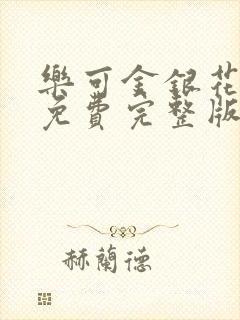 樂可金銀花
免費完整版
赫蘭德